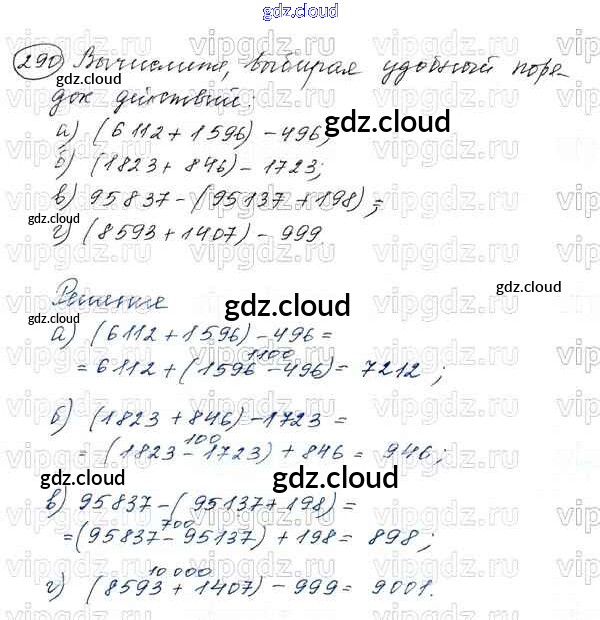 gdz.cloud
290) Вычислите, выбирая удобный поря-
док действий:
а) (6112 + 1596) - 496;
gdz.cloud
б) (1823 + 846) - 1723;
в) 95837 - (95137 + 198);
gdz.cloud
г) (8593 + 1407) - 999.
Решение
gdz.cloud
gdz.cloud
gdz.cloud
а) (6112 + 1596) - 496 =
1100
= 6112 + (1596 - 496) = 7212;
б) (1823 + 846) - 1723 =
100
= (1823 - 1723) + 846 = 946;
gdz.cloud
gdz.cloud
в) 95837 - (95137 + 198) =
700
= (95837 - 95137) + 198 = 898;
10 000
г) (8593 + 1407) - 999 = 9001.